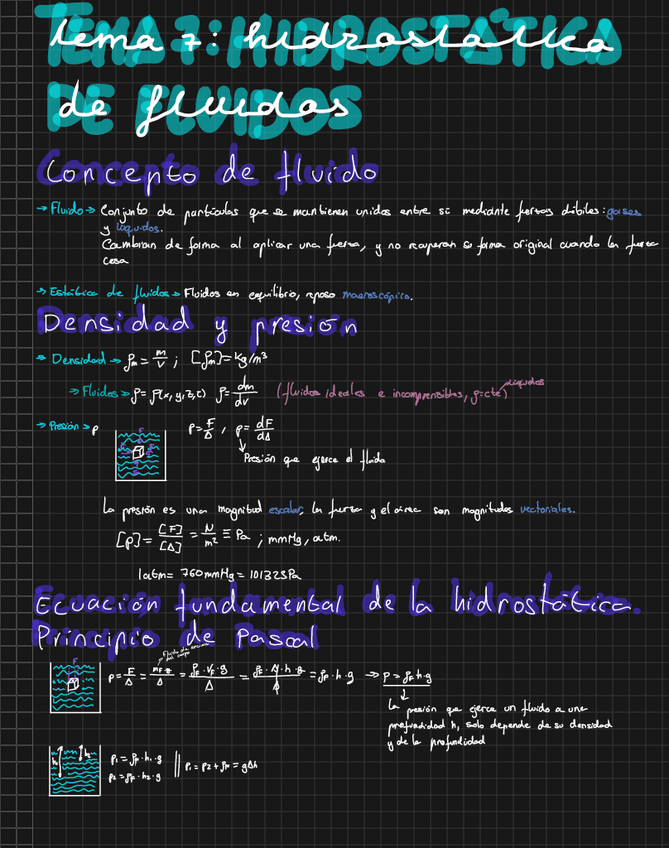 Tema 7: hidrostática
de fluidos
Concepto de fluido
→ Fluido → Conjunto de partículas que se mantienen unidos entre sí mediante fuerzas débiles: gases
y líquidos.
Cambian de forma al aplicar una fuerza, y no recuperan su forma original cuando la fuerza
cesa
→ Estática de fluidos → Fluidos en equilibrio, reposo macroscópico.
Densidad y presión
→ Densidad → ρm = m/V ; [ρm] = kg/m³
→ Fluidos → ρ = ρ(x,y,z,t) ρ = dm/dV (fluidos ideales e incomprensibles, ρ=cte) líquidos
→ Presión → p p = F/A , p = dF/dA
Presión que ejerce el fluido
La presión es una magnitud escalar, la fuerza y el área son magnitudes vectoriales.
[p] = [F]/[A] = N/m² ≡ Pa ; mmHg, atm.
1atm = 760mmHg = 101325Pa
Ecuación fundamental de la hidrostática.
Principio de Pascal
p = F/A = mF·g/A = ρF·VF·g/A = ρF·A·h·g/A = ρF·h·g → p = ρF·h·g
La presión que ejerce un fluido a una
profundidad h, solo depende de su densidad
y de la profundidad
h₁ h₂ p₁ = ρF·h₁·g
p₂ = ρF·h₂·g || p₁ = p₂ + ρF = gΔh